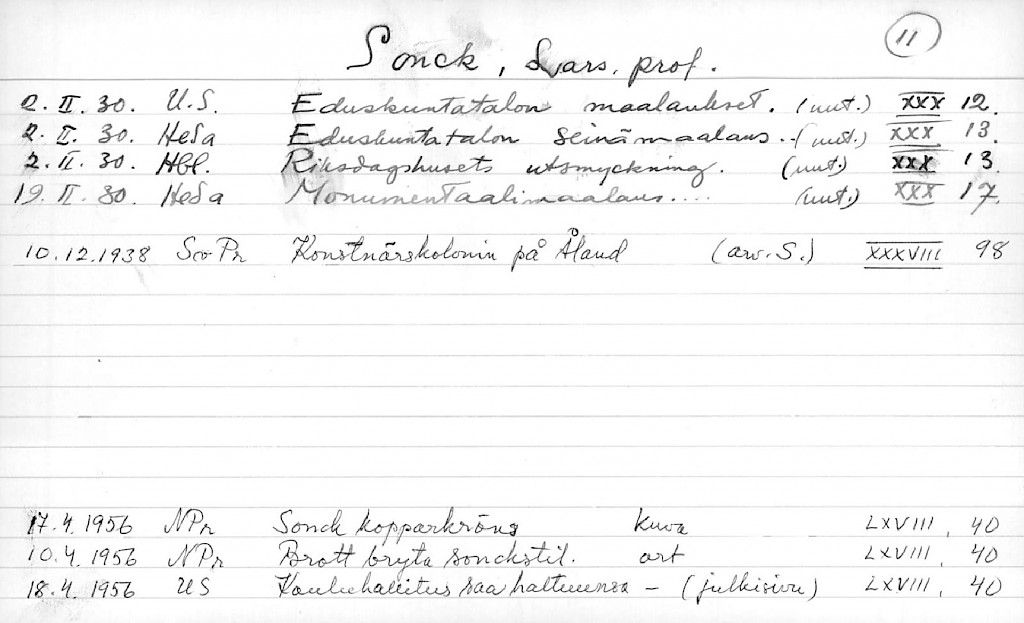 11
Sonck, Lars, prof.
2. II. 30. U.S. Eduskuntatalon maalaukset. (uut.) XXX 12.
2. II. 30. HeSa Eduskuntatalon seinämaalaus.. (uut.) XXX 13.
2. II. 30. Hbl. Riksdagshusets utsmyckning. (uut.) XXX 13.
19. II. 30 HeSa Monumentaalimaalaus.... (uut.) XXX 17.
10.12.1938 SvPr Konstnärskolonin på Åland (arv. S.) XXXVIII 98
17.4.1956 NPr Sonck kopparkröns kuva LXVIII, 40
10.4.1956 NPr Brott bryta sonckstil. art LXVIII, 40
18.4.1956 US Kouluhallitus saa haltuunsa – (julkisivu) LXVIII, 40